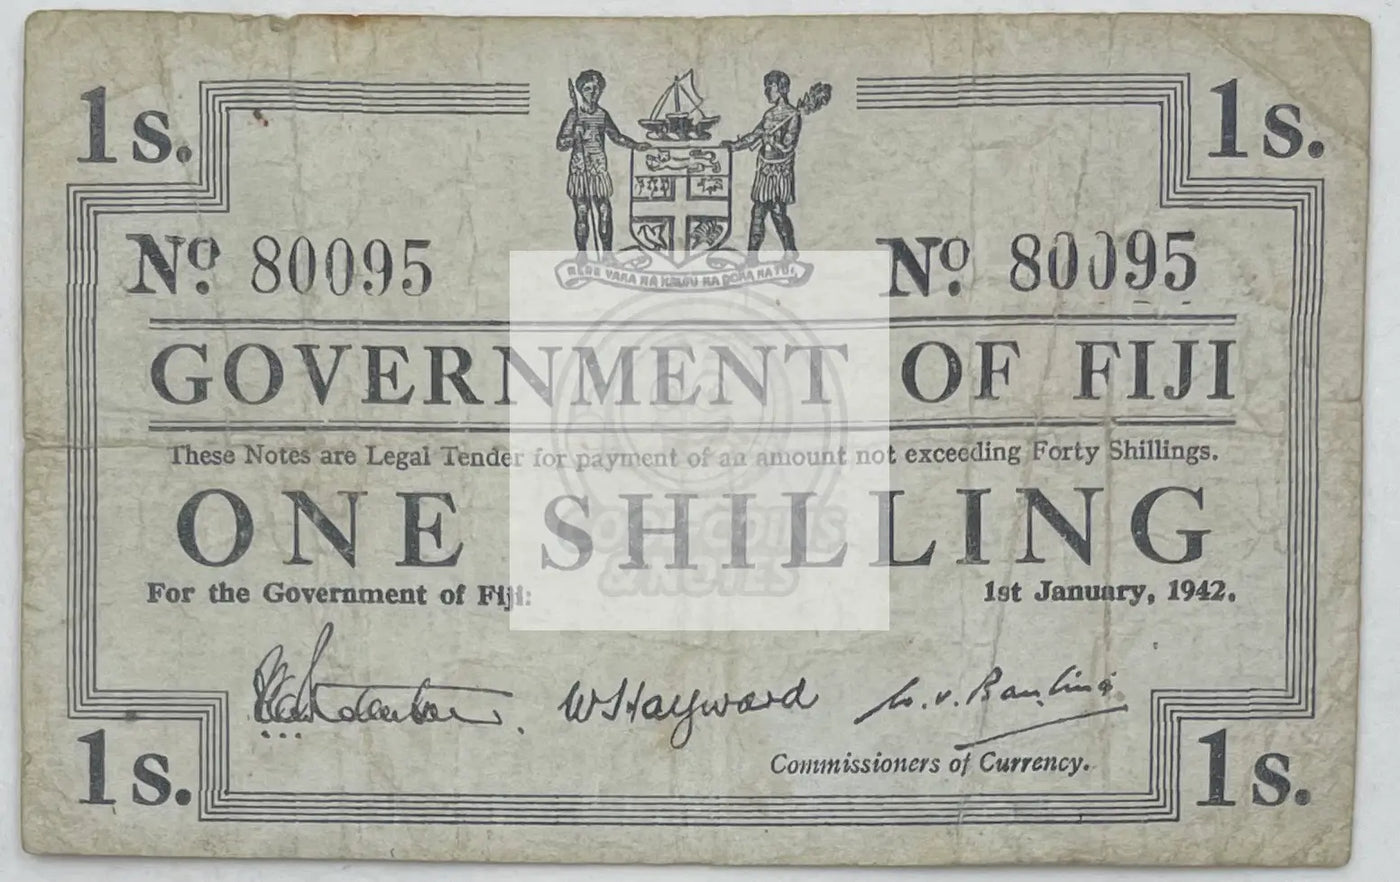 1s. 1s.
RERE VAKA NA KALOU KA DOKA NA TUI.
Nº. 80095 Nº. 80095
GOVERNMENT OF FIJI
These Notes are Legal Tender for payment of an amount not exceeding Forty Shillings.
ONE SHILLING
For the Government of Fiji:
1st January, 1942.
W S Hayward
Commissioners of Currency.
1s. 1s.
COINS
& NOTES